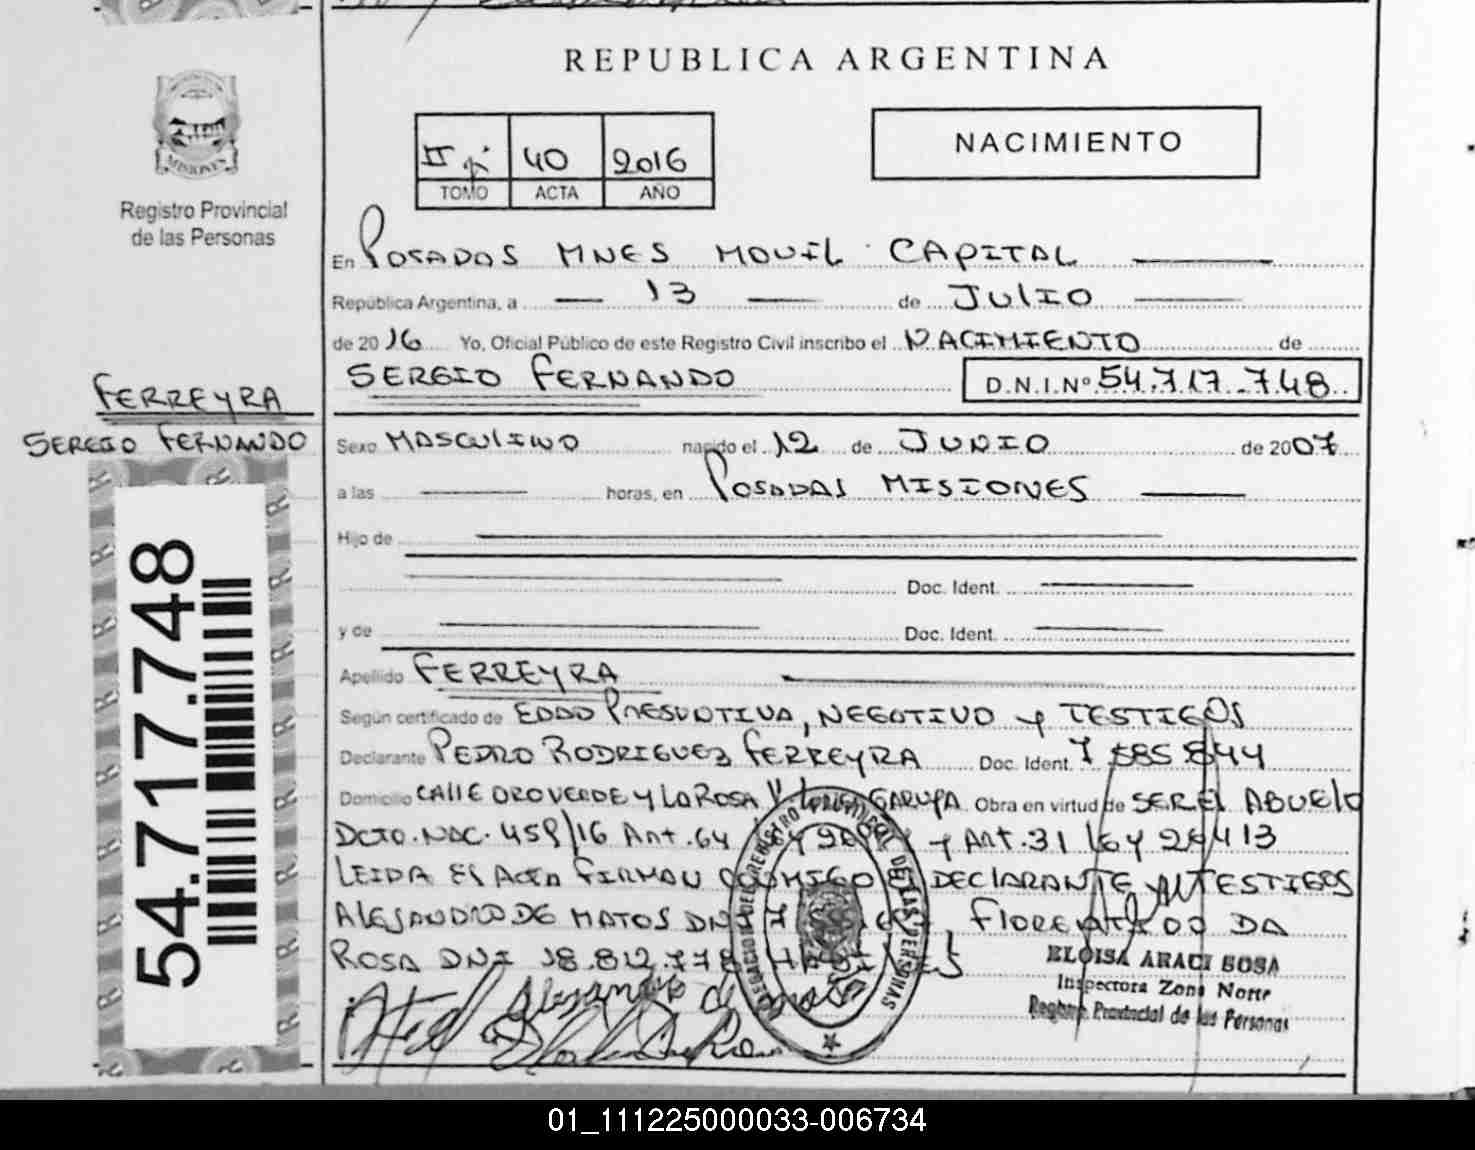 REPUBLICA ARGENTINA
MISIONES
Registro Provincial
de las Personas
II 40 2016
TOMO ACTA AÑO
NACIMIENTO
En POSADAS MNES MOVIL CAPITAL
República Argentina, a 13 de JULIO
de 2016 Yo, Oficial Público de este Registro Civil inscribo el NACIMIENTO de
SERGIO FERNANDO D.N.I.Nº 54.717.748
FERREYRA
SERGIO FERNANDO
54.717.748
Sexo MASCULINO nacido el 12 de JUNIO de 2007
a las horas, en POSADAS MISIONES
Hijo de
Doc. Ident.
y de Doc. Ident.
Apellido FERREYRA
Según certificado de EDAD PRESUNTIVA, NEGATIVO y TESTIGOS
Declarante PEDRO RODRIGUEZ FERREYRA Doc. Ident. 7 585 844
Domicilio CALLE ORO VERDE Y LA ROSA GARUPA Obra en virtud de SER EL ABUELO
DCTO. NAC. 459/16 Art. 64 y Art. 31 lEy 26413
LEIDA El ActA FIRMAN CONMIGO El DEClARANTE TESTIGOS
ALEJANDRO DE MATOS DNI DA
ROSA DNI 18.812.778
ELOISA ARACI SOSA
Inspectora Zona Norte
Registro Provincial de las Personas
01_111225000033-006734